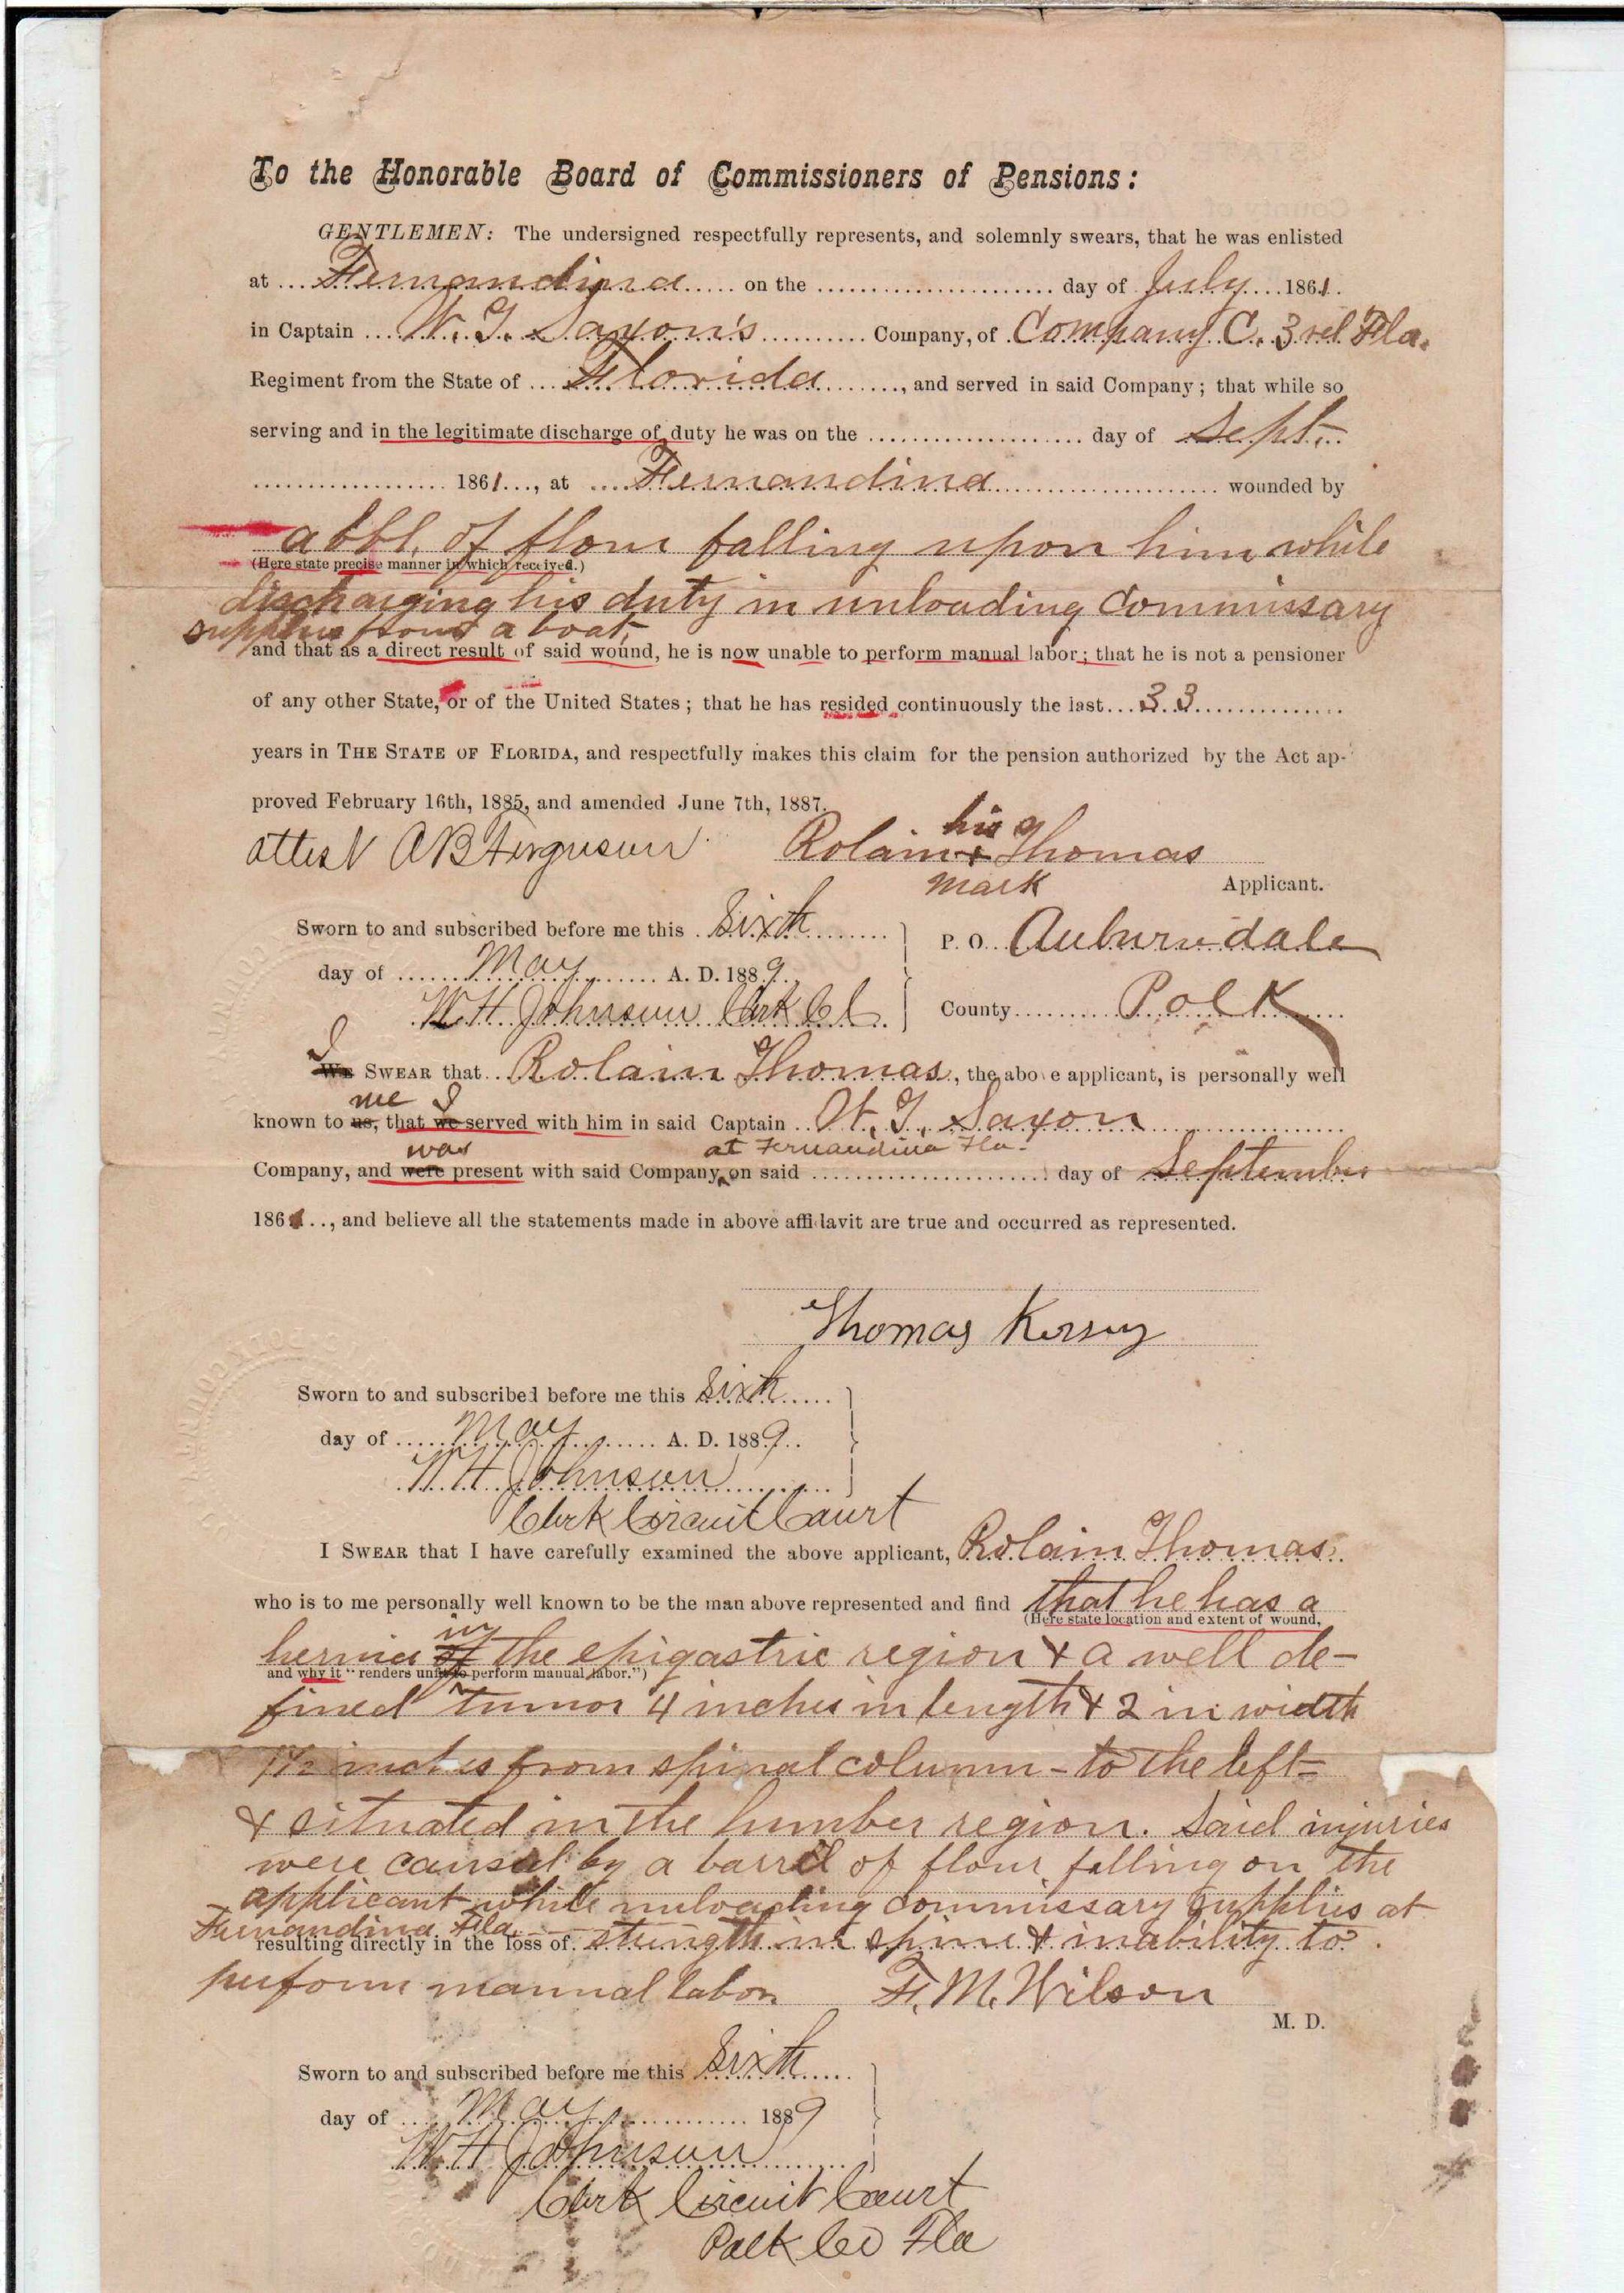 To the Honorable Board of Commissioners of Pensions:
GENTLEMEN: The undersigned respectfully represents, and solemnly swears, that he was enlisted
at Fernandina on the day of July 1861.
in Captain W. T. Saxon's Company, of Company C. 3rd Fla.
Regiment from the State of Florida, and served in said Company; that while so
serving and in the legitimate discharge of duty he was on the day of Sept.
1861, at Fernandina wounded by
a bbl. of flour falling upon him while
(Here state precise manner in which received.)
discharging his duty in unloading Commissary
supplies from a boat,
and that as a direct result of said wound, he is now unable to perform manual labor; that he is not a pensioner
of any other State, or of the United States; that he has resided continuously the last 33
years in THE STATE OF FLORIDA, and respectfully makes this claim for the pension authorized by the Act ap-
proved February 16th, 1885, and amended June 7th, 1887.
attest A B Ferguson Rolain his x mark Thomas
Applicant.
Sworn to and subscribed before me this Sixth
day of May A. D. 1889
W H Johnson Clerk Ct
P. O. Auburndale
County Polk
I We SWEAR that Rolain Thomas, the above applicant, is personally well
known to me us, that I we served with him in said Captain W. T. Saxon
Company, and was were present with said Company, at Fernandina Fla. on said day of September
1861, and believe all the statements made in above affidavit are true and occurred as represented.
Thomas Kersey
Sworn to and subscribed before me this Sixth
day of May A. D. 1889
W H Johnson
Clerk Circuit Court
I SWEAR that I have carefully examined the above applicant, Rolain Thomas
who is to me personally well known to be the man above represented and find that he has a
(Here state location and extent of wound,
hernia in of the epigastric region & a well de-
and why it "renders unfit to perform manual labor.")
fined tumor 4 inches in length & 2 in width
1½ inches from spinal column - to the left -
& situated in the lumber region. Said injuries
were caused by a barrel of flour falling on the
applicant while unloading commissary supplies at
Fernandina Fla
resulting directly in the loss of strength in spine & inability to
perform manual labor F. M. Wilson
M. D.
Sworn to and subscribed before me this Sixth
day of May 1889
W H Johnson
Clerk Circuit Court
Polk Co Fla